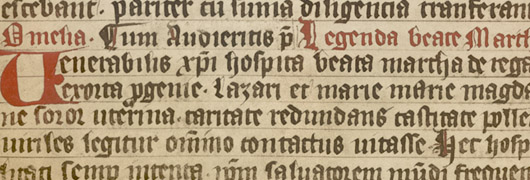 escebant · pariter cū sūma diligencia tranſferam
Omelia · Cum Audieritis p̄ Legenda beate Marth
Uenerabilis xp̄i hoſpita beata martha de rega
exorta ꝓgenie · Lazari et marie magda
ne ſoror uterina · caritate redundans caſtitate polle
uiriles legitur om̄ino contactus uitaſſe · Hec hoſp
ſemp intenta · ip̄m ſaluatorem mūdi frequen